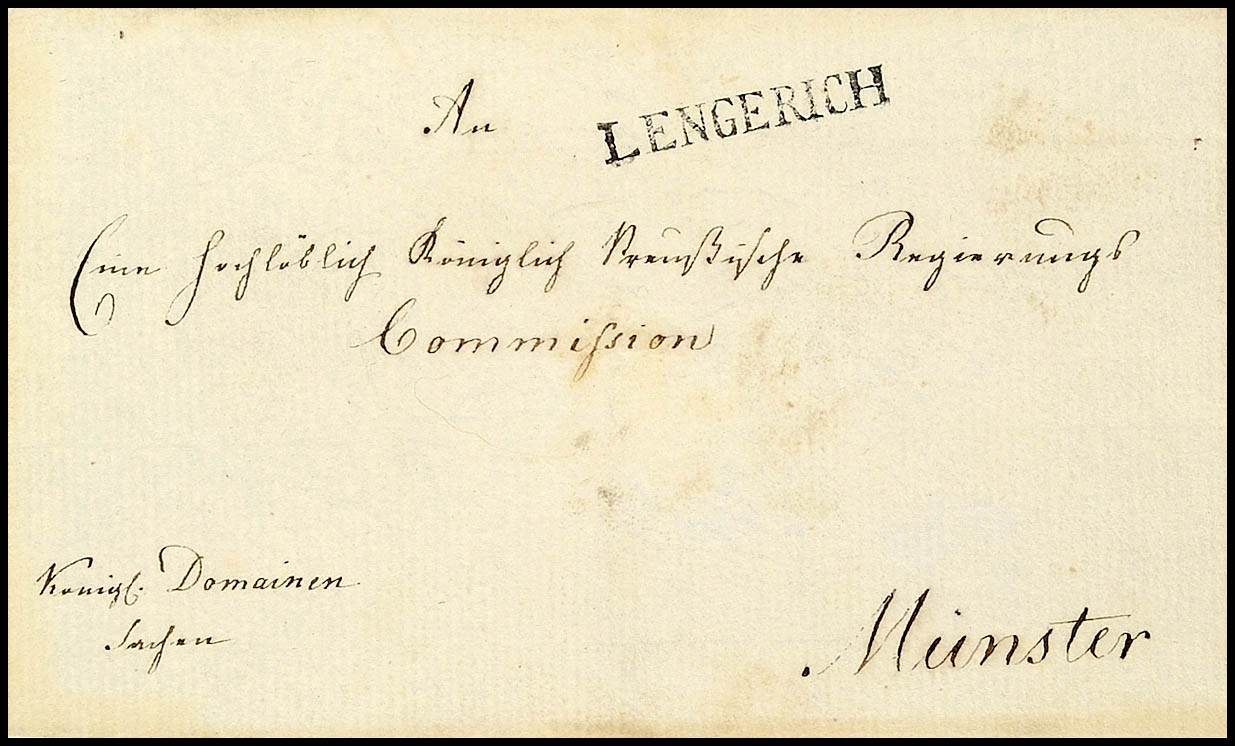 An
LENGERICH
Eine hochlöblich Königlich Preußische Regierungs
Commission
Königl. Domainen
Sachen
Münster